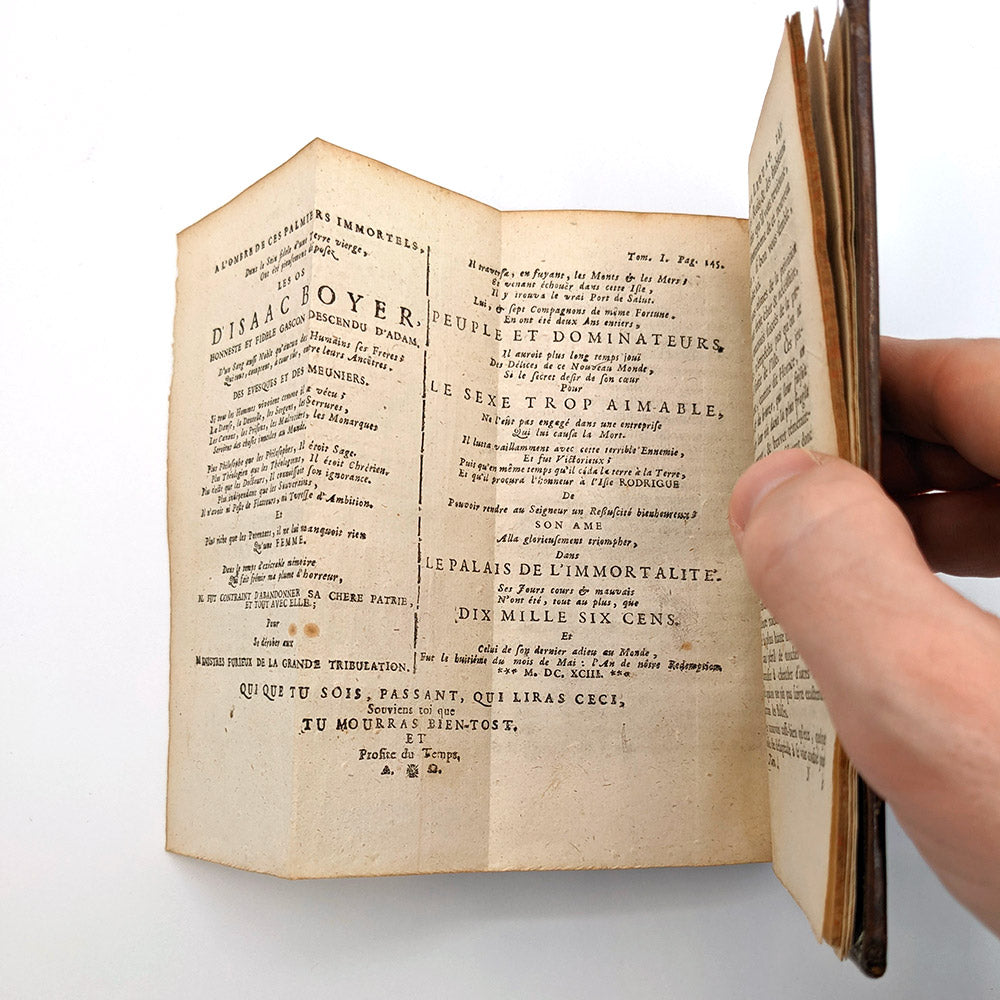 A L'OMBRE DE CES PALMIERS IMMORTELS,
Dans le Sein fidele d'une Terre vierge,
Ont été pieusement déposez
LES OS
D'ISAAC BOYER,
HONNESTE ET FIDELE GASCON DESCENDU D'ADAM,
D'un Sang aussi Noble qu'aucun des Humains ses Freres;
Qui tous, comptent, à tour rôle, entre leurs Ancêtres.
DES EVESQUES ET DES MEUNIERS.
Si tous les Hommes vivoient comme il a vécu;
La Danse, la Dentelle, les Sergens, les Serrures,
Les Canons, les Prisons, les Maltotiers, les Monarques
Seroient des choses inutiles au Monde.
Plus Philosophe que les Philosophes, Il étoit Sage.
Plus Théologien que les Théologiens, Il étoit Chrétien.
Plus docte que les Docteurs, Il connoissoit son ignorance.
Plus indépendant que les Souverains,
Il n'avoit ni Peste de Flatteurs, ni Tortise d'Ambition.
Et
Plus riche que les Potentats, il ne lui manquoit rien
Qu'une FEMME.
Dans le temps d'exécrable mémoire
Qui fait frémir ma plume d'horreur,
IL FUT CONTRAINT D'ABANDONNER SA CHERE PATRIE,
ET TOUT AVEC ELLE;
Pour
Se dérober aux
MINISTRES FURIEUX DE LA GRANDE TRIBULATION.
Tom. I. Pag. 145.
Il traversa, en fuyant, les Monts & les Mers;
Et venant échouër dans cette Isle,
Il y trouva le vrai Port de Salut.
Lui, & sept Compagnons de même Fortune.
En ont été deux Ans entiers,
PEUPLE ET DOMINATEURS.
Il auroit plus long temps joui
Des Délices de ce Nouveau Monde,
Si le secret desir de son cœur
Pour
LE SEXE TROP AIMABLE,
Ne l'eût pas engagé dans une entreprise
Qui lui causa la Mort.
Il lutta vaillamment avec cette terrible Ennemie,
Et fut Victorieux;
Puis qu'en même temps qu'il céda la terre à la Terre,
Et qu'il procura l'honneur à l'Isle RODRIGUE
De
Pouvoir rendre au Seigneur un Ressuscité bienheureux;
SON AME
Alla glorieusement triompher,
Dans
LE PALAIS DE L'IMMORTALITE.
Ses Jours cours & mauvais
N'ont été, tout au plus, que
DIX MILLE SIX CENS.
Et
Celui de son dernier adieu au Monde,
Fut le huitiéme du mois de Mai: l'An de nôtre Redemption
*** M. DC. XCIII. ***
QUI QUE TU SOIS, PASSANT, QUI LIRAS CECI,
Souviens toi que
TU MOURRAS BIEN-TOST.
ET
Profite du Temps.
A. Ω.